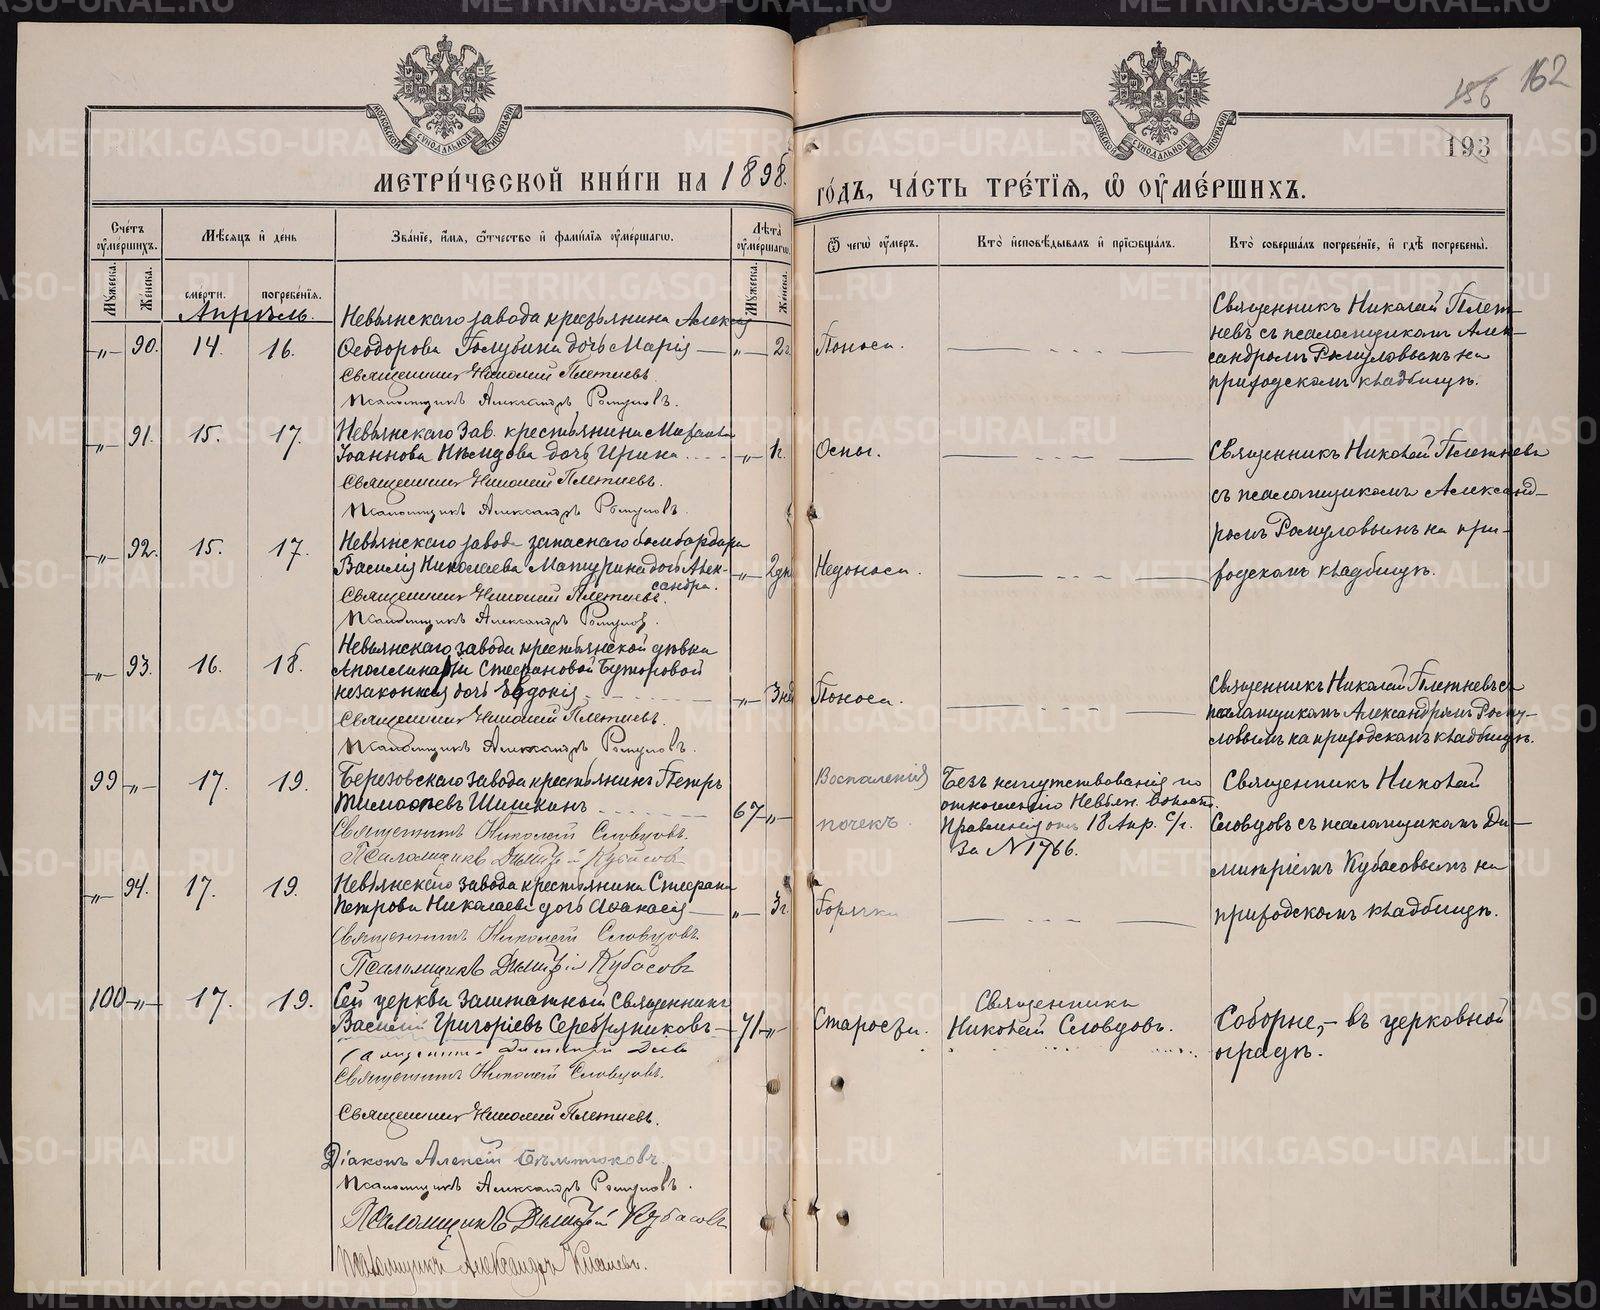 156 162
193
МЕТРИ́ЧЕСКОЙ КНИ́ГИ НА 1898.
ГО́ДЪ, ЧА́СТЬ ТРЕ́ТІѦ, Ѽ ОУ҆МЕ́РШИХЪ.
Сче́тъ оу҆ме́ршихъ.
Мѣ́сѧцъ и҆ де́нь
Зва́нїе, и҆́мѧ, ѻ҆́тчество и҆ фами́лїѧ оу҆ме́ршагѡ.
Лѣ́та оу҆ме́ршагѡ.
Ѿ чегѡ̀ оу҆́меръ.
Кто̀ и҆сповѣ́дывалъ и҆ прїѡбща́лъ.
Кто̀ соверша́лъ погребе́нїе, и҆ гдѣ̀ погребены̀.
Мꙋ́жеска. Же́нска.
сме́рти. погребе́нїѧ.
Мꙋ́жеска. Же́нска.
Апрѣль.
Невьянскаго завода крестьянина Алексѣя
-„- 90. 14. 16. Ѳеодорова Голубина дочь Марія -„- 2г.
Священникъ Николай Плетневъ.
Псаломщикъ Александръ Ромуловъ.
Поноса.
Священникъ Николай Плет-
невъ съ псаломщикомъ Алек-
сандромъ Ромуловымъ на
приходскомъ кладбищѣ.
-„- 91. 15. 17. Невьянскаго Зав. крестьянина Михаила
Іоаннова дочь Ирина -„- 1г.
Священникъ Николай Плетневъ.
Псаломщикъ Александръ Ромуловъ.
Оспы.
Священникъ Николай Плетневъ
съ псаломщикомъ Александ-
ромъ Ромуловымъ на при-
ходскомъ кладбищѣ.
-„- 92. 15. 17. Невьянскаго завода запаснаго бомбардира
Василія Николаева Матурина дочь Алек-
сандра. -„- 2дн.
Священникъ Николай Плетневъ.
Псаломщикъ Александръ Ромуловъ.
Недоноса.
-„- 93. 16. 18. Невьянскаго завода крестьянской дѣвки
Аполлинаріи Стефановой Буторовой
незаконная дочь Евдокія -„- 3нд.
Священникъ Николай Плетневъ.
Псаломщикъ Александръ Ромуловъ.
Поноса.
Священникъ Николай Плетневъ съ
псаломщикомъ Александромъ Рому-
ловымъ на приходскомъ кладбищѣ.
99 -„- 17. 19. Березовскаго завода крестьянинъ Петръ
Тимофеевъ Шишкинъ 67 -„-
Священникъ Николай Словцовъ.
Псаломщикъ Дмитрій Кубасовъ
Воспаленія
почекъ
Безъ напутствованія по
отношенію Невьян. Волост.
Правленія отъ 18 Апр. с/г.
за N 1766.
Священникъ Николай
Словцовъ съ псаломщикомъ Ди-
митріемъ Кубасовымъ на
приходскомъ кладбищѣ.
-„- 94. 17. 19. Невьянскаго завода крестьянина Стефана
Петрова Николаева дочь Аѳанасія -„- 3г.
Священникъ Николай Словцовъ.
Псаломщикъ Дмитрій Кубасовъ
Горячки
100 -„- 17. 19. Сей церкви Заштатный Священникъ
Василій Григоріевъ Серебряниковъ 71 -„-
Священникъ Николай Словцовъ.
Священникъ Николай Плетневъ.
Діаконъ Алексій
Псаломщикъ Александръ Ромуловъ.
Псаломщикъ Дмитрій Кубасовъ
Псаломщикъ Александръ
Старости.
Священникъ
Николай Словцовъ.
Соборне, - въ церковной
оградѣ.
METRIKI.GASO-URAL.RU